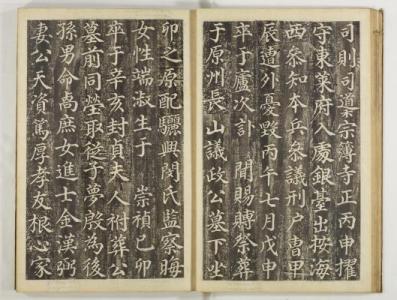 司則司䆃宗簿寺正丙申擢
守東萊府入處銀臺出按海
西叅知本兵叅議刑户曺甲
辰遭外憂毀丙午七月戊申
卒于廬次訃 聞賜賻祭葬
于原州長山議政公墓下坐
卯之原配驪興閔氏監察晦
女性端淑生于 崇禎己卯
卒于辛亥封貞夫人祔葬公
墓前同塋取從子夢殷為後
孫男命卨庶女進士金漢弼
妻公天資篤厚孝友根心家